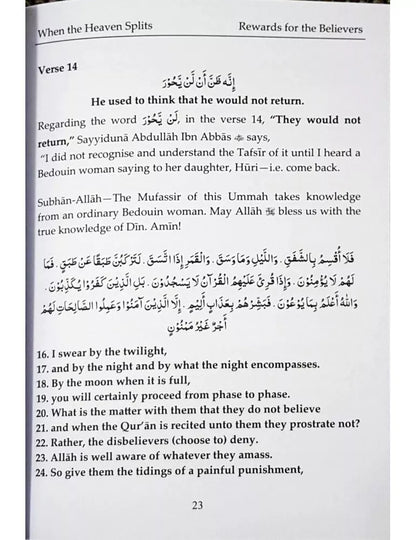 When the Heaven Splits Rewards for the Believers
Verse 14
إِنَّه ظَنَّ أَنْ لَنْ يَّحُوْرَ
He used to think that he would not return.
Regarding the word لَنْ يَّحُوْرَ, in the verse 14, “They would not
return,” Sayyidunā Abdullāh Ibn Abbās says,
“I did not recognise and understand the Tafsīr of it until I heard a
Bedouin woman saying to her daughter, Hūri—i.e. come back.
Subhān-Allāh—The Mufassir of this Ummah takes knowledge
from an ordinary Bedouin woman. May Allāh bless us with the
true knowledge of Dīn. Amīn!
فَلَا أُقْسِمُ بِالشَّفَقِ . وَاللَّيْلِ وَمَا وَسَقَ . وَالْقَمَرِ إِذَا اتَّسَقَ . لَتَرْكَبُنَّ طَبَقًا عَنْ طَبَقٍ . فَمَا
لَهُمْ لَا يُؤْمِنُوْنَ . وَإِذَا قُرِئَ عَلَيْهِمُ الْقُرْآنُ لَا يَسْجُدُوْنَ . بَلِ الَّذِيْنَ كَفَرُوْا يُكَذِّبُوْنَ .
وَاللهُ أَعْلَمُ بِمَا يُوْعُوْنَ . فَبَشِّرْهُمْ بِعَذَابٍ أَلِيْمٍ . إِلَّا الَّذِيْنَ آمَنُوْا وَعَمِلُوا الصَّالِحَاتِ لَهُمْ
أَجْرٌ غَيْرُ مَمْنُوْنٍ
16. I swear by the twilight,
17. and by the night and by what the night encompasses.
18. By the moon when it is full,
19. you will certainly proceed from phase to phase.
20. What is the matter with them that they do not believe
21. and when the Qur’ān is recited unto them they prostrate not?
22. Rather, the disbelievers (choose to) deny.
23. Allāh is well aware of whatever they amass.
24. So give them the tidings of a painful punishment,
23